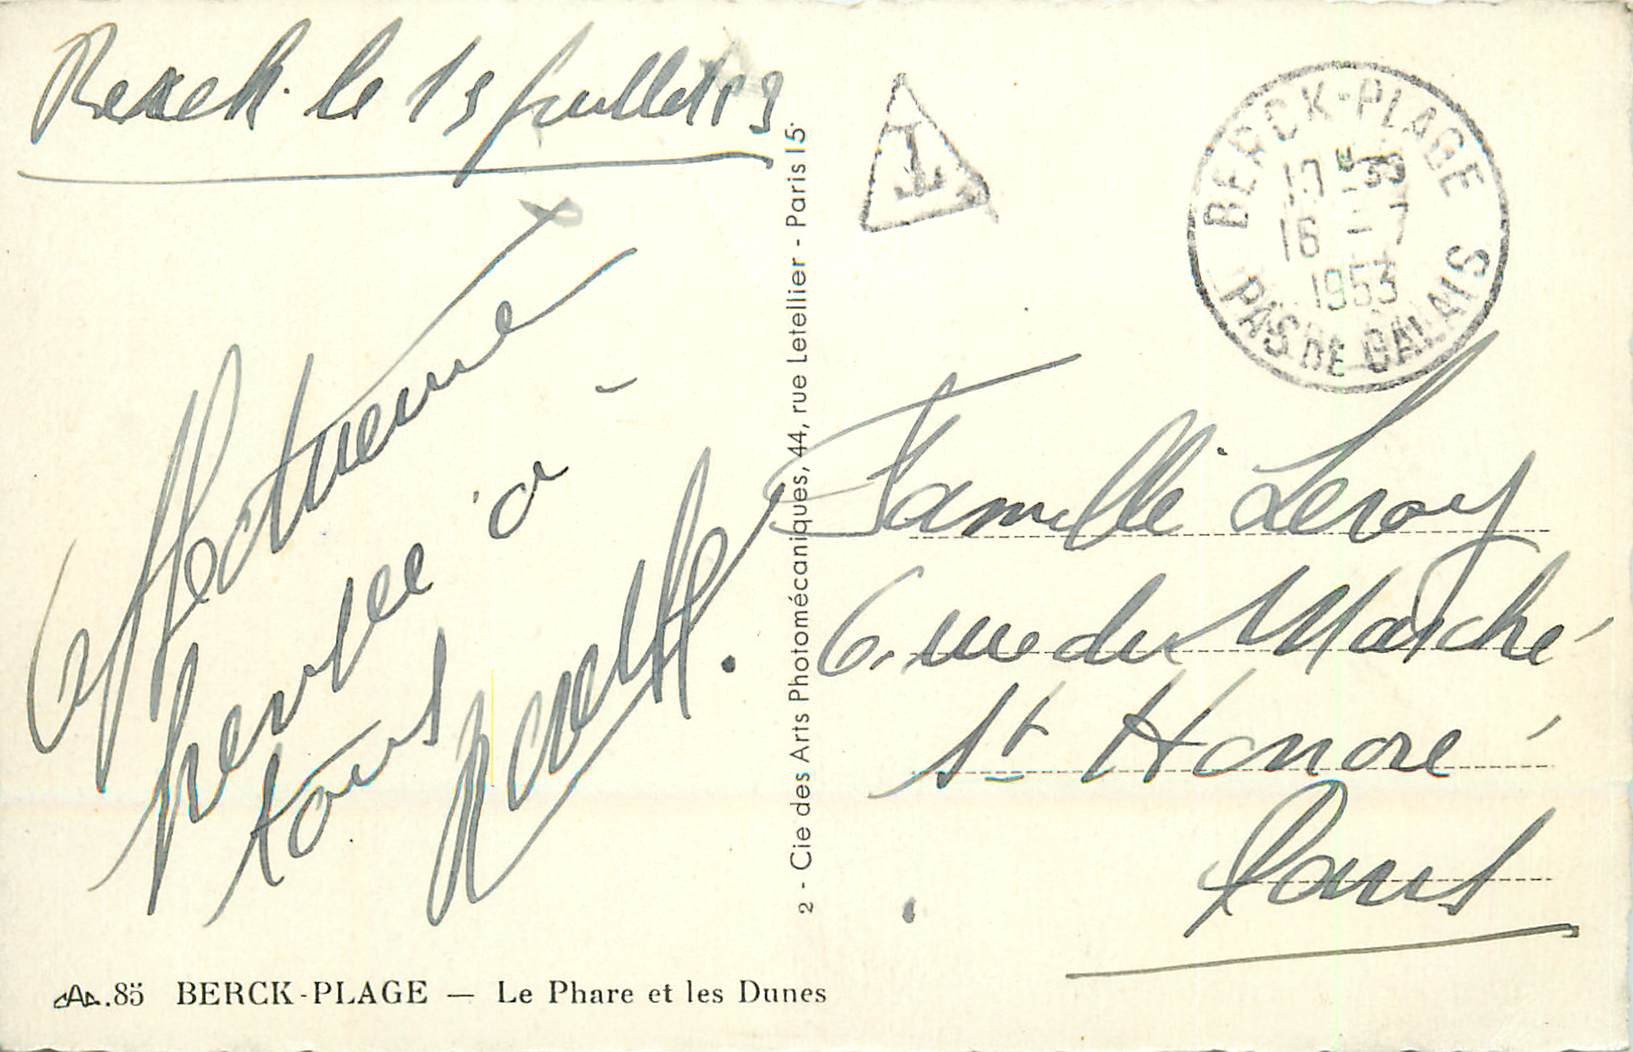 Berck. le 15 juillet 53
Affectueuse
pensée à
tous
2 - Cie des Arts Photomécaniques, 44, rue Letellier - Paris 15
T
BERCK-PLAGE
16 - 7
1953
PAS DE CALAIS
Famille Leroy
6, rue du Marché
St Honoré
Paris
.85 BERCK-PLAGE — Le Phare et les Dunes